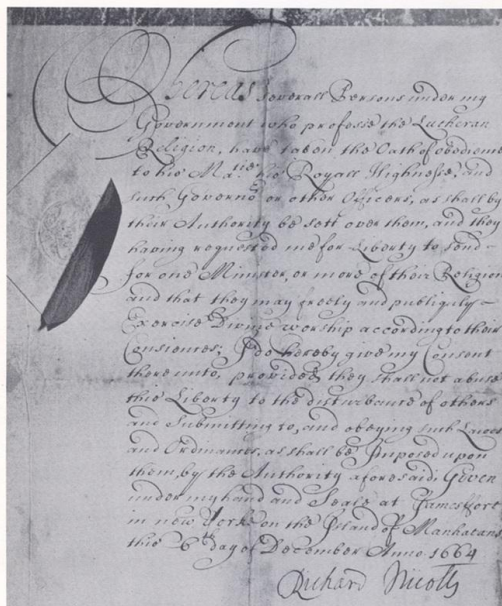 Whereas Severall Persons under my
Government who professe the Lutheran
Religion, have taken the Oath of obedience
to his Ma.tie his Royall Highnesse, and
such Governo.r or other Officers, as shall by
their Authority be sett over them, and they
having requested me for Liberty to send
for one Minister, or more of their Religion
and that they may freely and publiquly
Exercise Divine worship according to their
Consiences; I do hereby give my Consent
thereunto, provided they shall not abuse
this Liberty to the disturbance of others
and Submitting to, and obeying such Lawes
and Ordinances, as shall be Imposed upon
them, by the Authority aforesaid: Given
under my hand and Seale at Jamesfort
in new York on the Island of Manhatans
this 6th day of December Anno 1664
Richard Nicolls